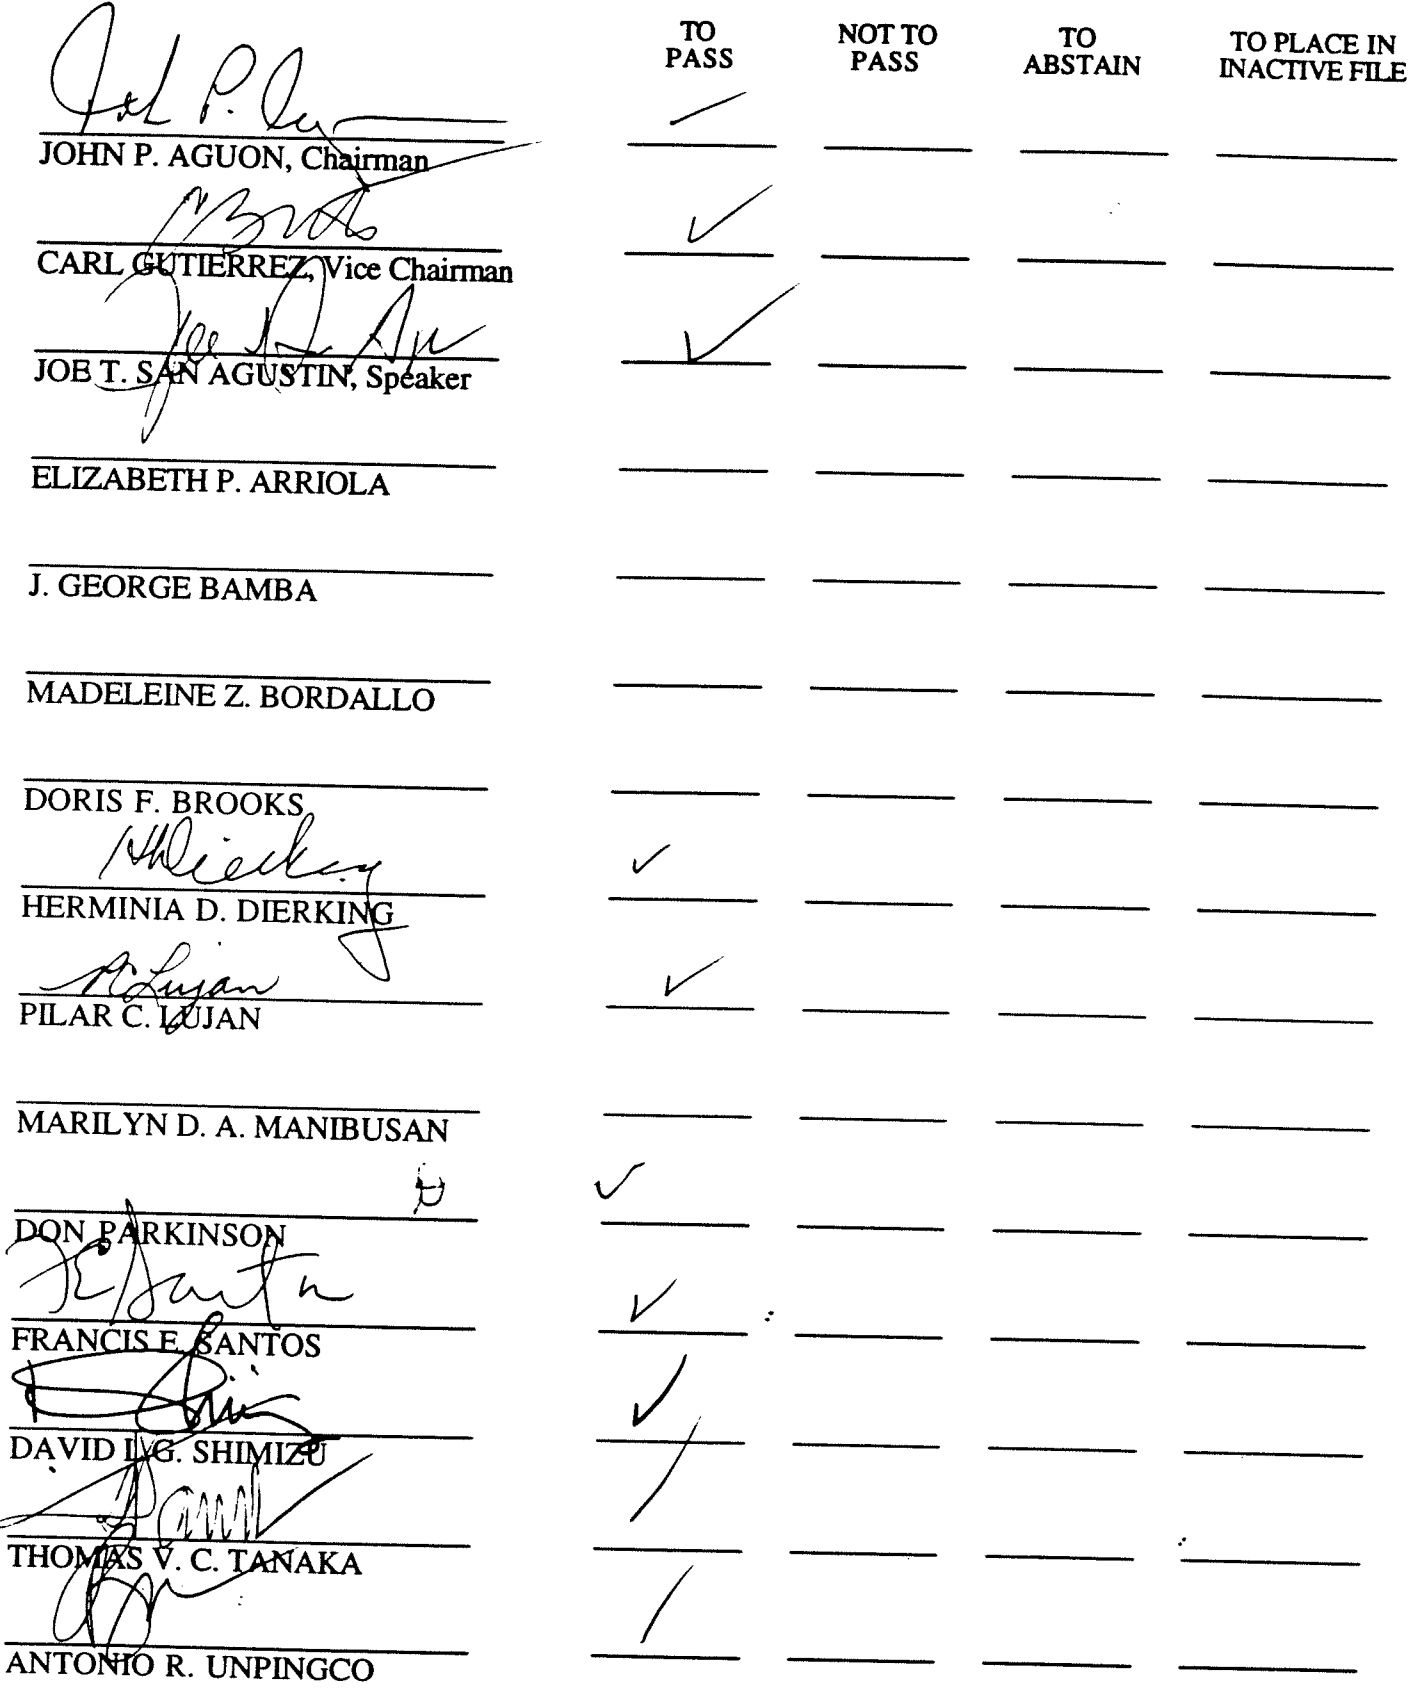 TO PASS NOT TO PASS TO ABSTAIN TO PLACE IN INACTIVE FILE
John P.
JOHN P. AGUON, Chairman
CARL GUTIERREZ, Vice Chairman
Joe
JOE T. SAN AGUSTIN, Speaker
ELIZABETH P. ARRIOLA
J. GEORGE BAMBA
MADELEINE Z. BORDALLO
DORIS F. BROOKS
HDierking
HERMINIA D. DIERKING
PC Lujan
PILAR C. LUJAN
MARILYN D. A. MANIBUSAN
DON PARKINSON
FE Santos
FRANCIS E. SANTOS
DAVID L. G. SHIMIZU
THOMAS V. C. TANAKA
ANTONIO R. UNPINGCO